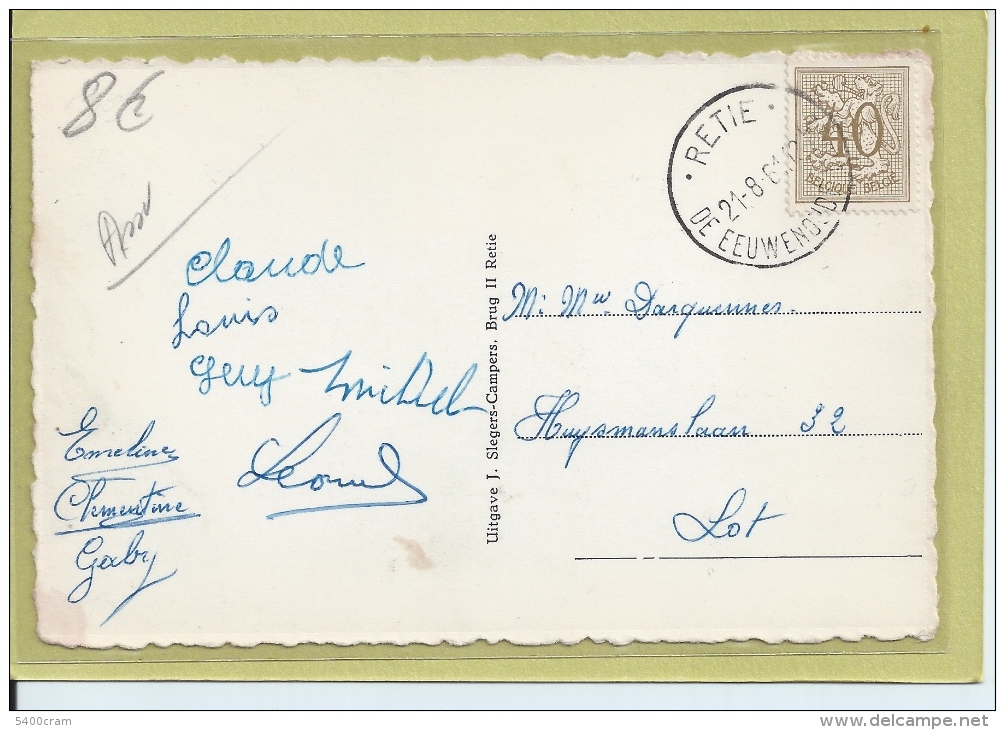 8 €
RETIE
21-8-61
DE EEUWENOUD
40
BELGIQUE BELGIË
Claude
Louis
Guy Michel
Emeline
Clementine
Gaby
Uitgave J. Slegers-Campers, Brug II Retie
Mr Mw. Darquennes.
Huysmanslaan 32
Lot
5400cram
delcampe.net